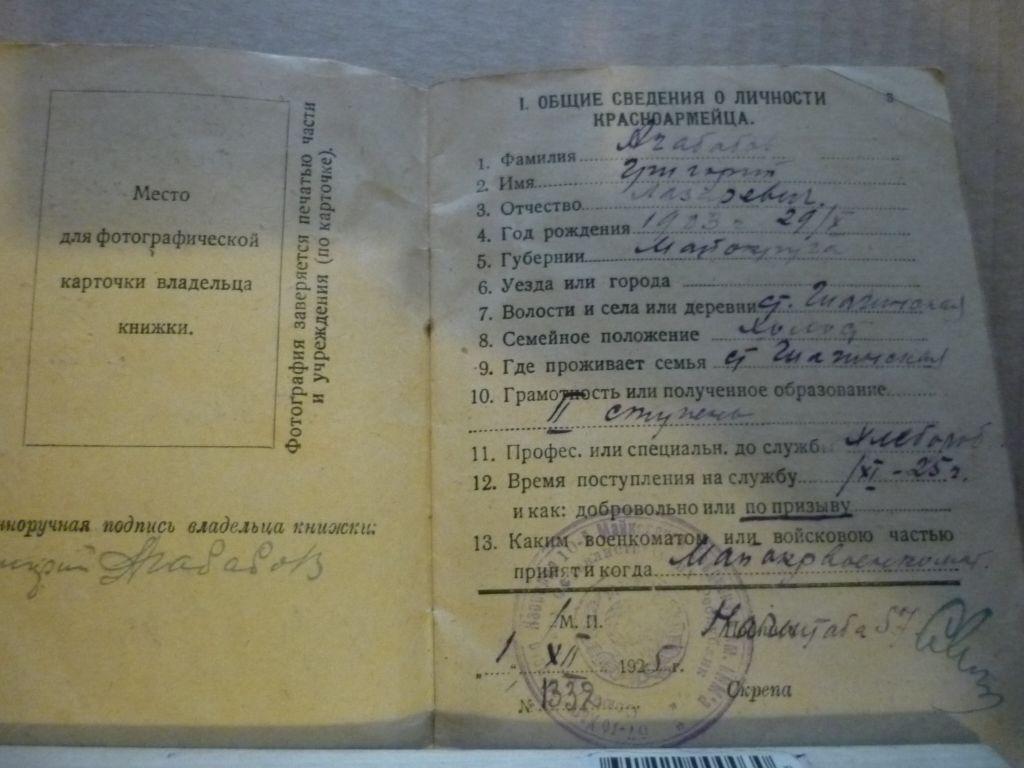 Место
для фотографической
карточки владельца
книжки.
Фотография заверяется печатью части
и учреждения (по карточке).
нноручная подпись владельца книжки:
3
I. ОБЩИЕ СВЕДЕНИЯ О ЛИЧНОСТИ
КРАСНОАРМЕЙЦА.
1. Фамилия
2. Имя Григорий
3. Отчество Лазаревич.
4. Год рождения 1903 - 29/X
5. Губернии Майокруга
6. Уезда или города
7. Волости и села или деревни ст. Гиагинская
8. Семейное положение Холост
9. Где проживает семья ст Гиагинская
10. Грамотность или полученное образование
II ступень
11. Профес. или специальн. до служб. Хлебороб
12. Время поступления на службу 1/XI - 25 г.
и как: добровольно или по призыву
13. Каким военкоматом или войсковою частью
принят и когда Майокрвоенкомат.
М. П. Начштаба 57
"1" XII 1925 г.
Скрепа
№ 1339